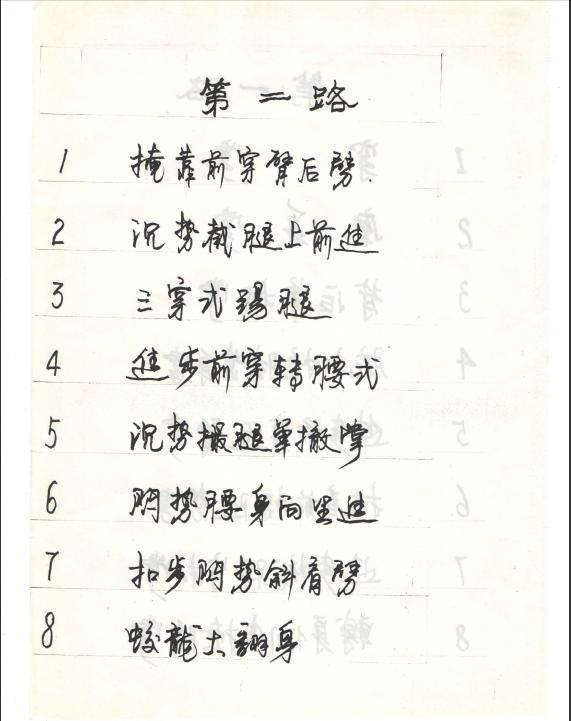 第二路
1 掩靠前穿臂后劈.
2 沉势截腿上前進
3 三穿式踢腿
4 進步前穿转腰式
5 沉势撮腿单撤掌
6 势腰身向里進
7 扣步势斜肩劈
8 蛟龍大翻身